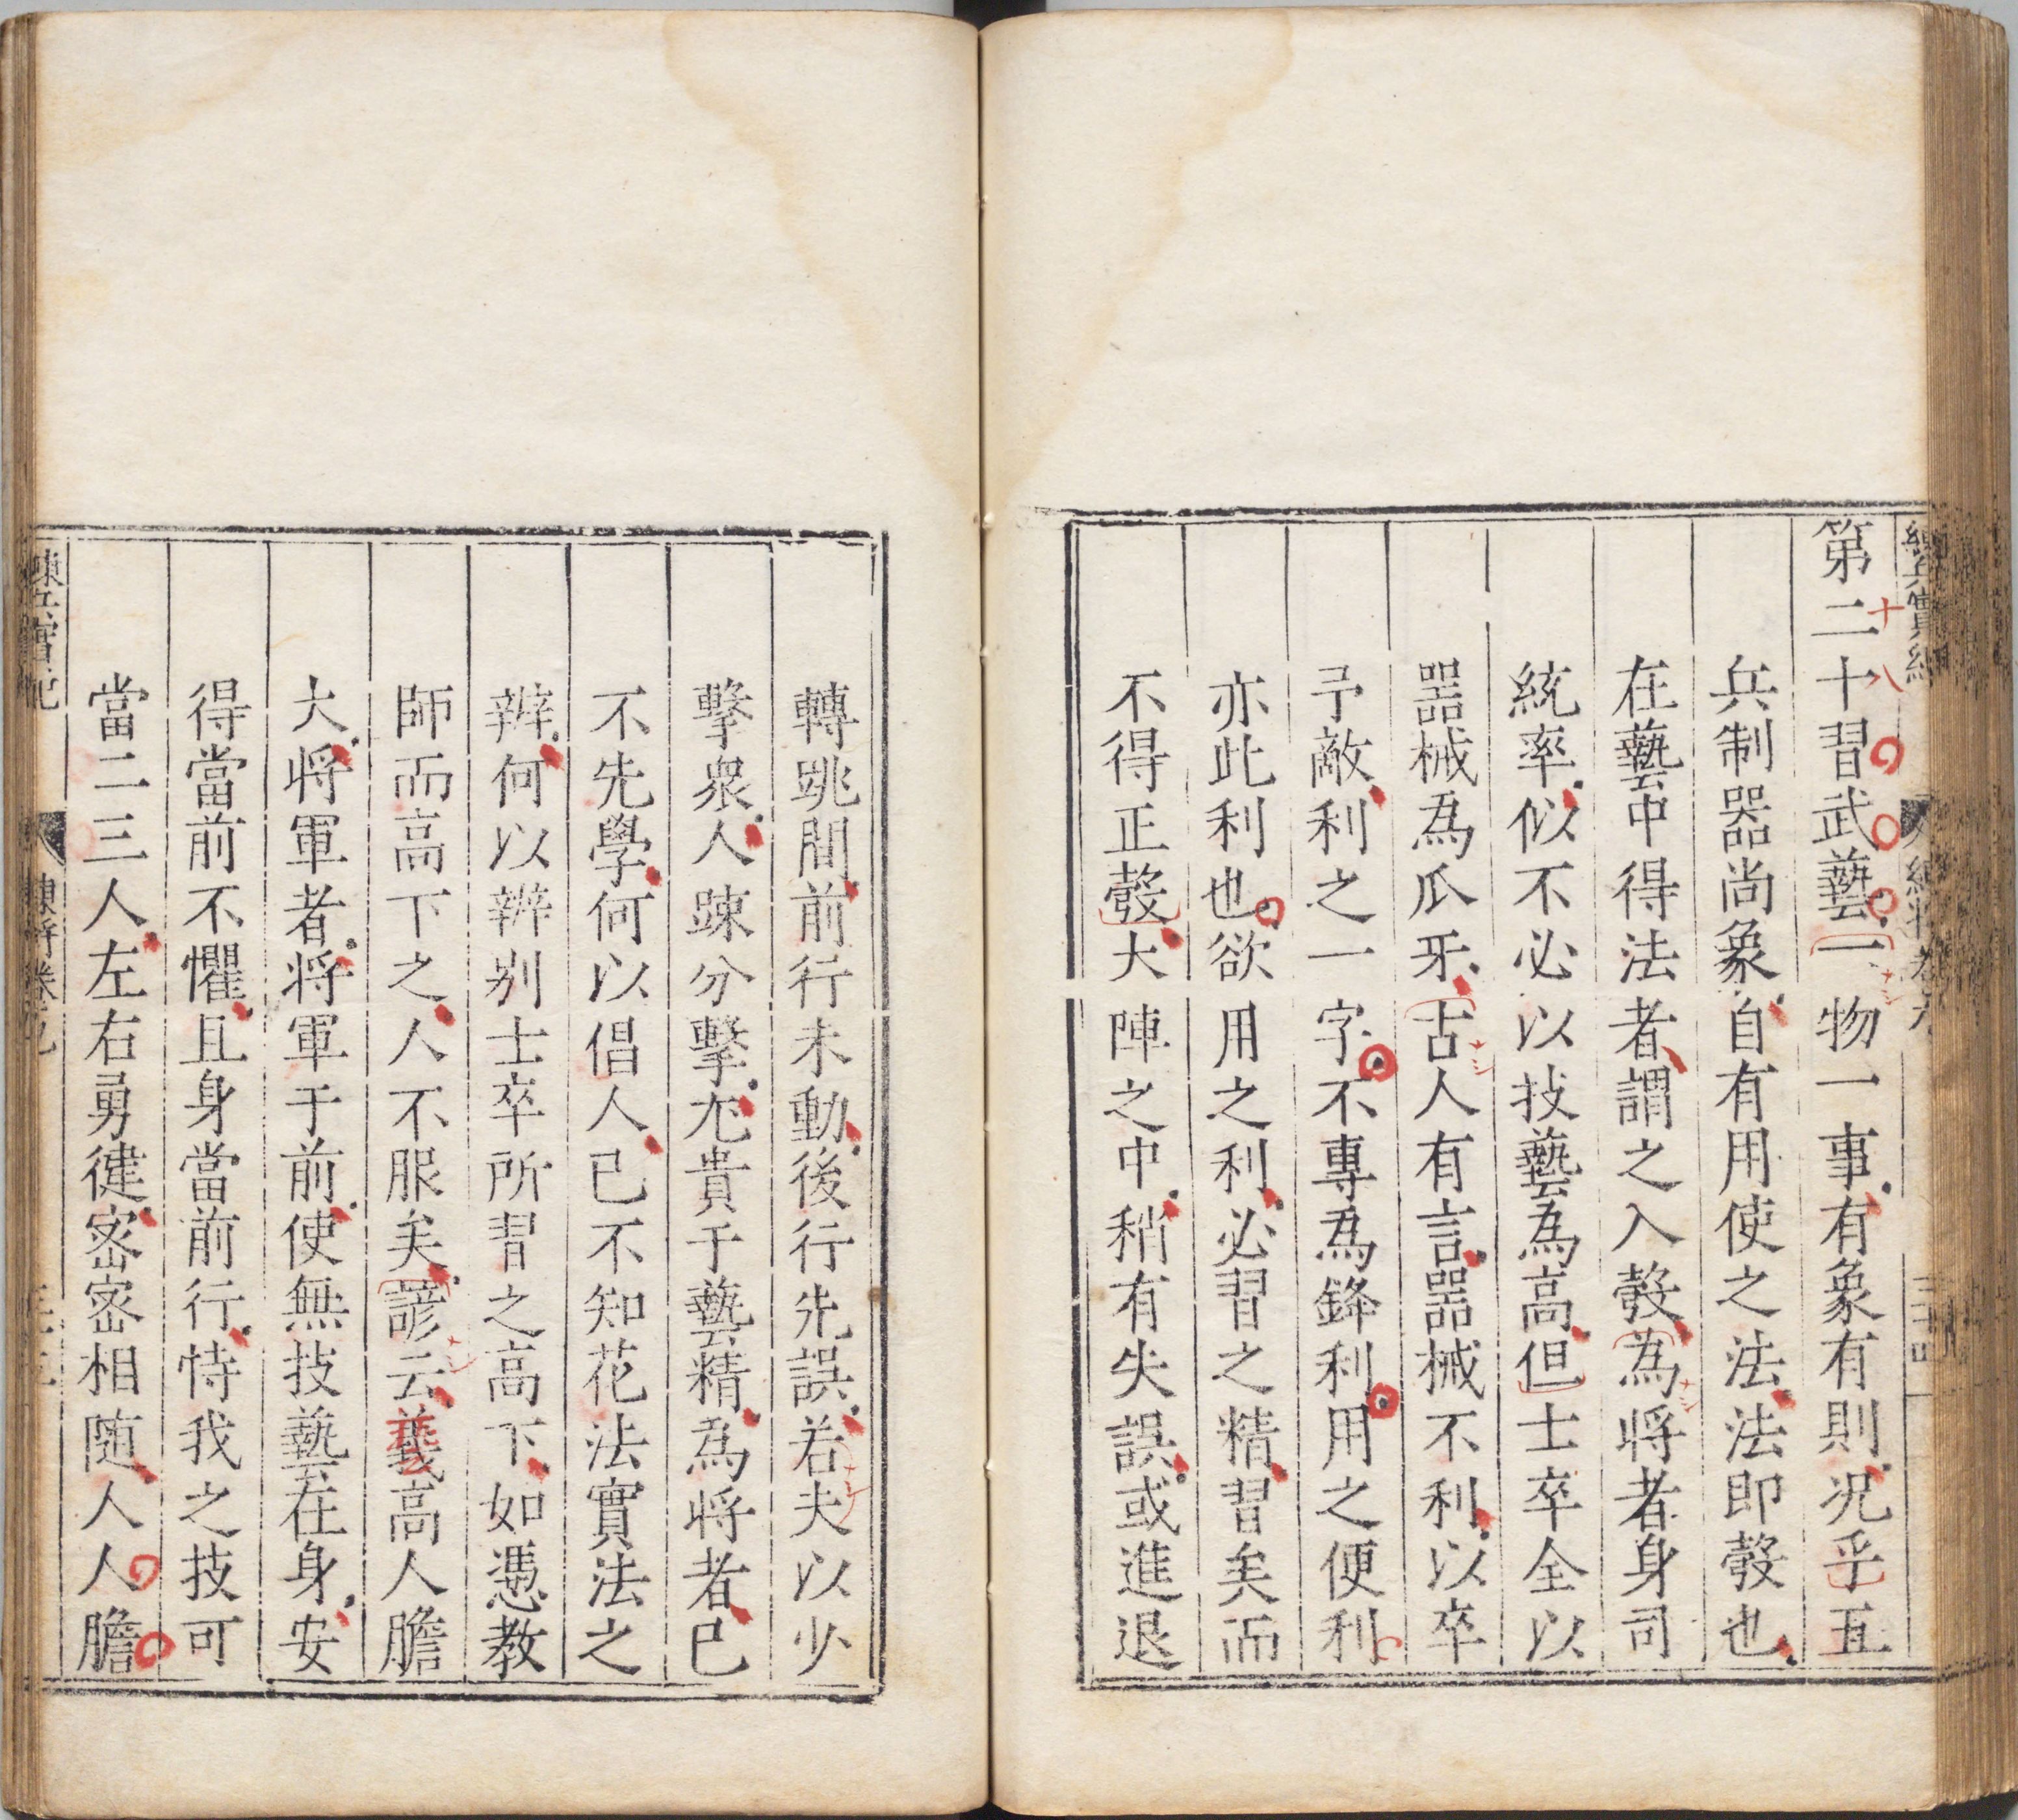 第二十習武藝一物一事有象有則况乎五
十八
兵制噐尚象自有用使之法法即彀也
在藝中得法者謂之入彀為將者身司
統率似不必以技藝為高但士卒全以
噐械為爪牙古人有言噐械不利以卒
予敵利之一字不專為鋒利用之便利
亦此利也欲用之利必習之精習矣而
不得正彀大陣之中稍有失誤或進退
轉跳間前行未動後行先誤若夫以少
擊衆人踈分擊尤貴于藝精為將者已
不先學何以倡人已不知花法實法之
辨何以辨别士卒所習之高下如憑教
師而高下之人不服矣諺云義高人膽
大將軍者將軍于前使無技藝在身安
得當前不懼且身當前行恃我之技可
當二三人左右勇健密密相随人人膽